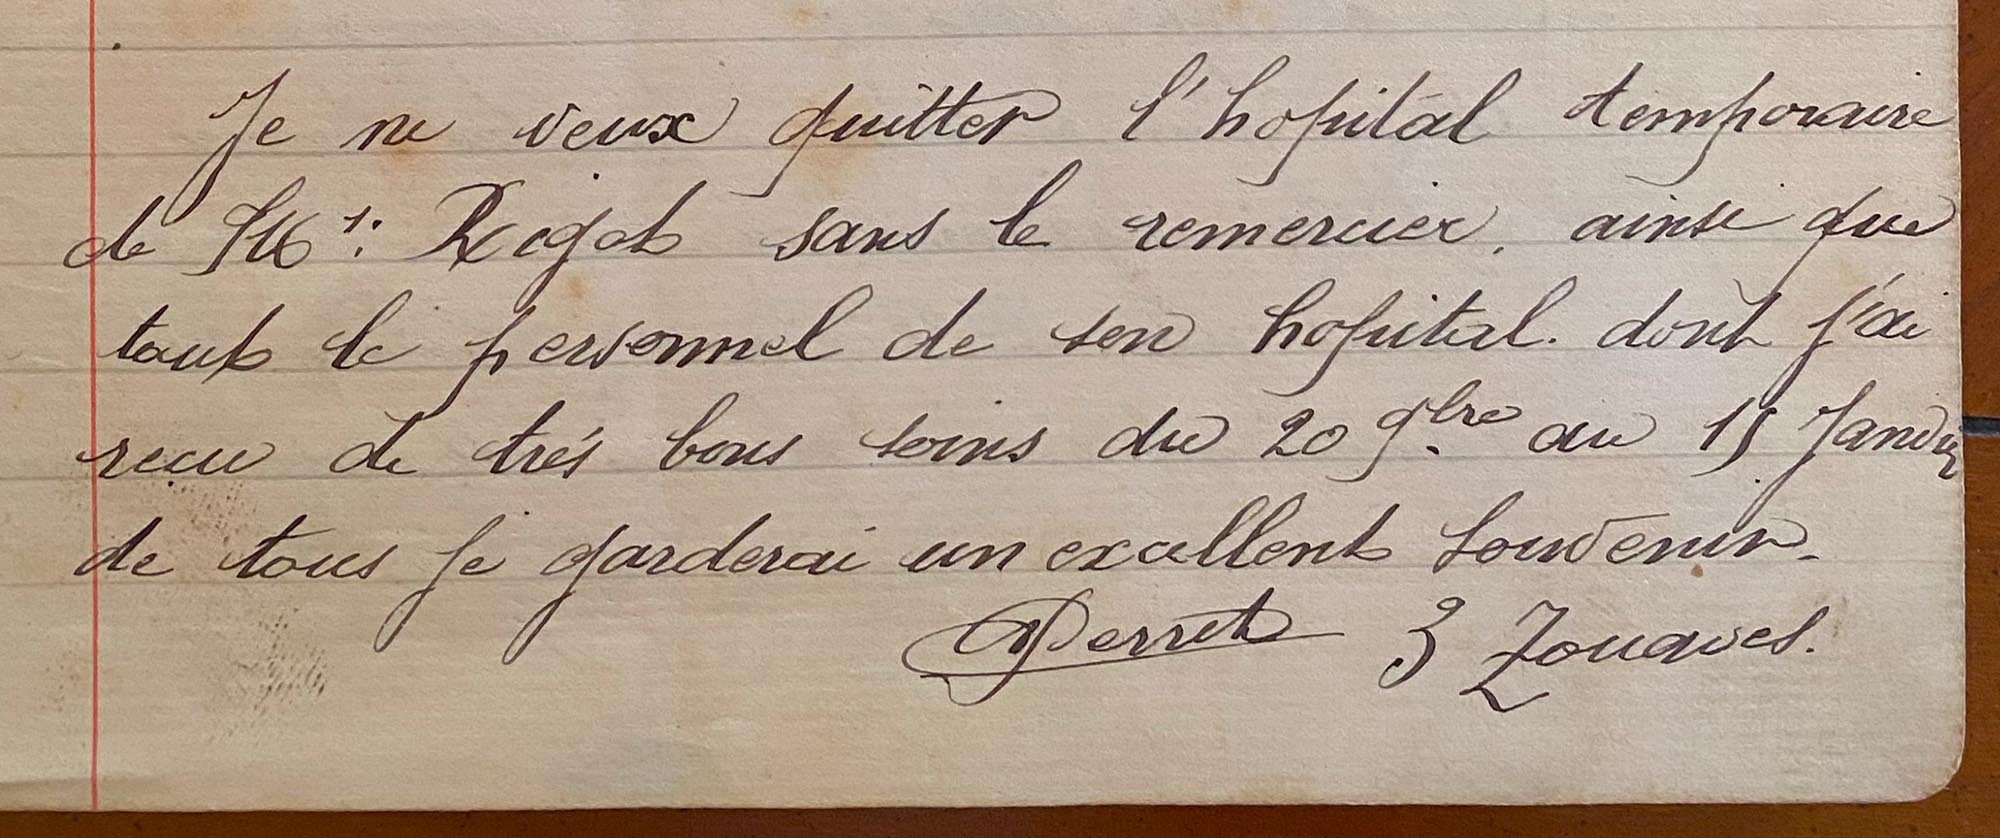 Je ne veux quitter l'hopital temporaire
de Mr: Rigot sans le remercier, ainsi que
tout le personnel de son hopital. dont j'ai
recu de trés bons soins du 20 9bre au 15 Janvier
de tous je garderai un excellent souvenir.
Perret 3 Zouaves.